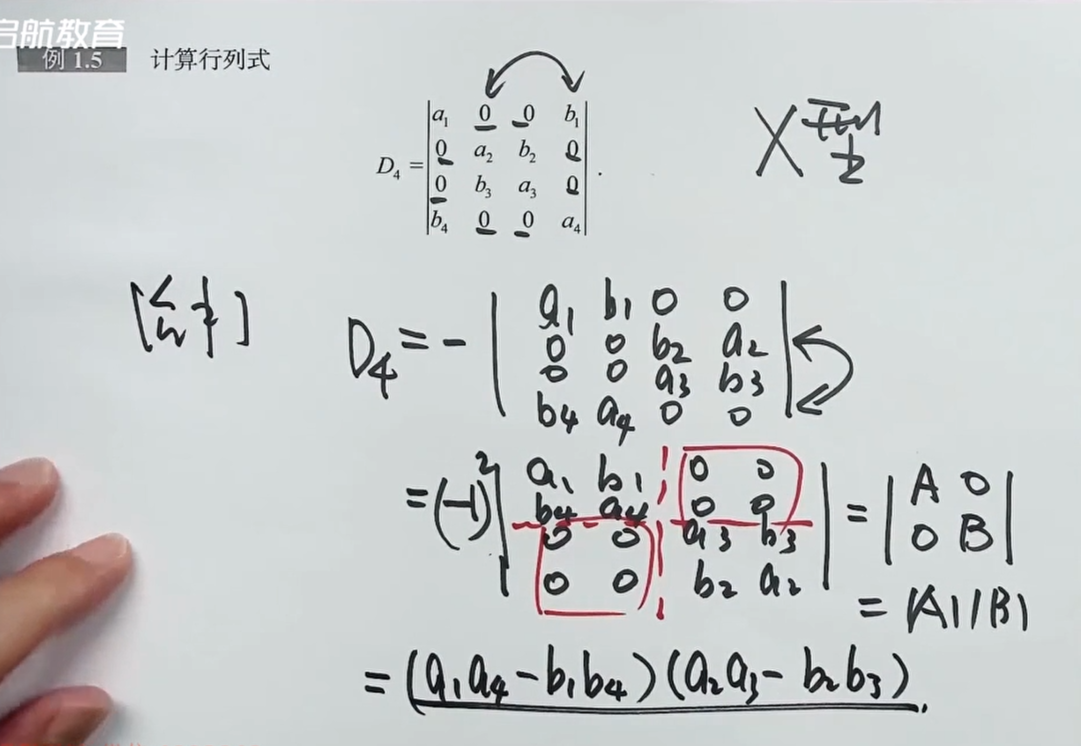 启航教育
例 1.5 计算行列式
D₄ = | a₁ 0 0 b₁ |
| 0 a₂ b₂ 0 |
| 0 b₃ a₃ 0 |
| b₄ 0 0 a₄ | .
X型
D₄ = - | a₁ b₁ 0 0 |
| 0 0 b₂ a₂ |
| 0 0 a₃ b₃ |
| b₄ a₄ 0 0 |
= (-1)² | a₁ b₁ 0 0 | = | A 0 |
| b₄ a₄ 0 0 | | 0 B |
| 0 0 a₃ b₃ |
| 0 0 b₂ a₂ | = |A||B|
= (a₁a₄ - b₁b₄)(a₂a₃ - b₂b₃).